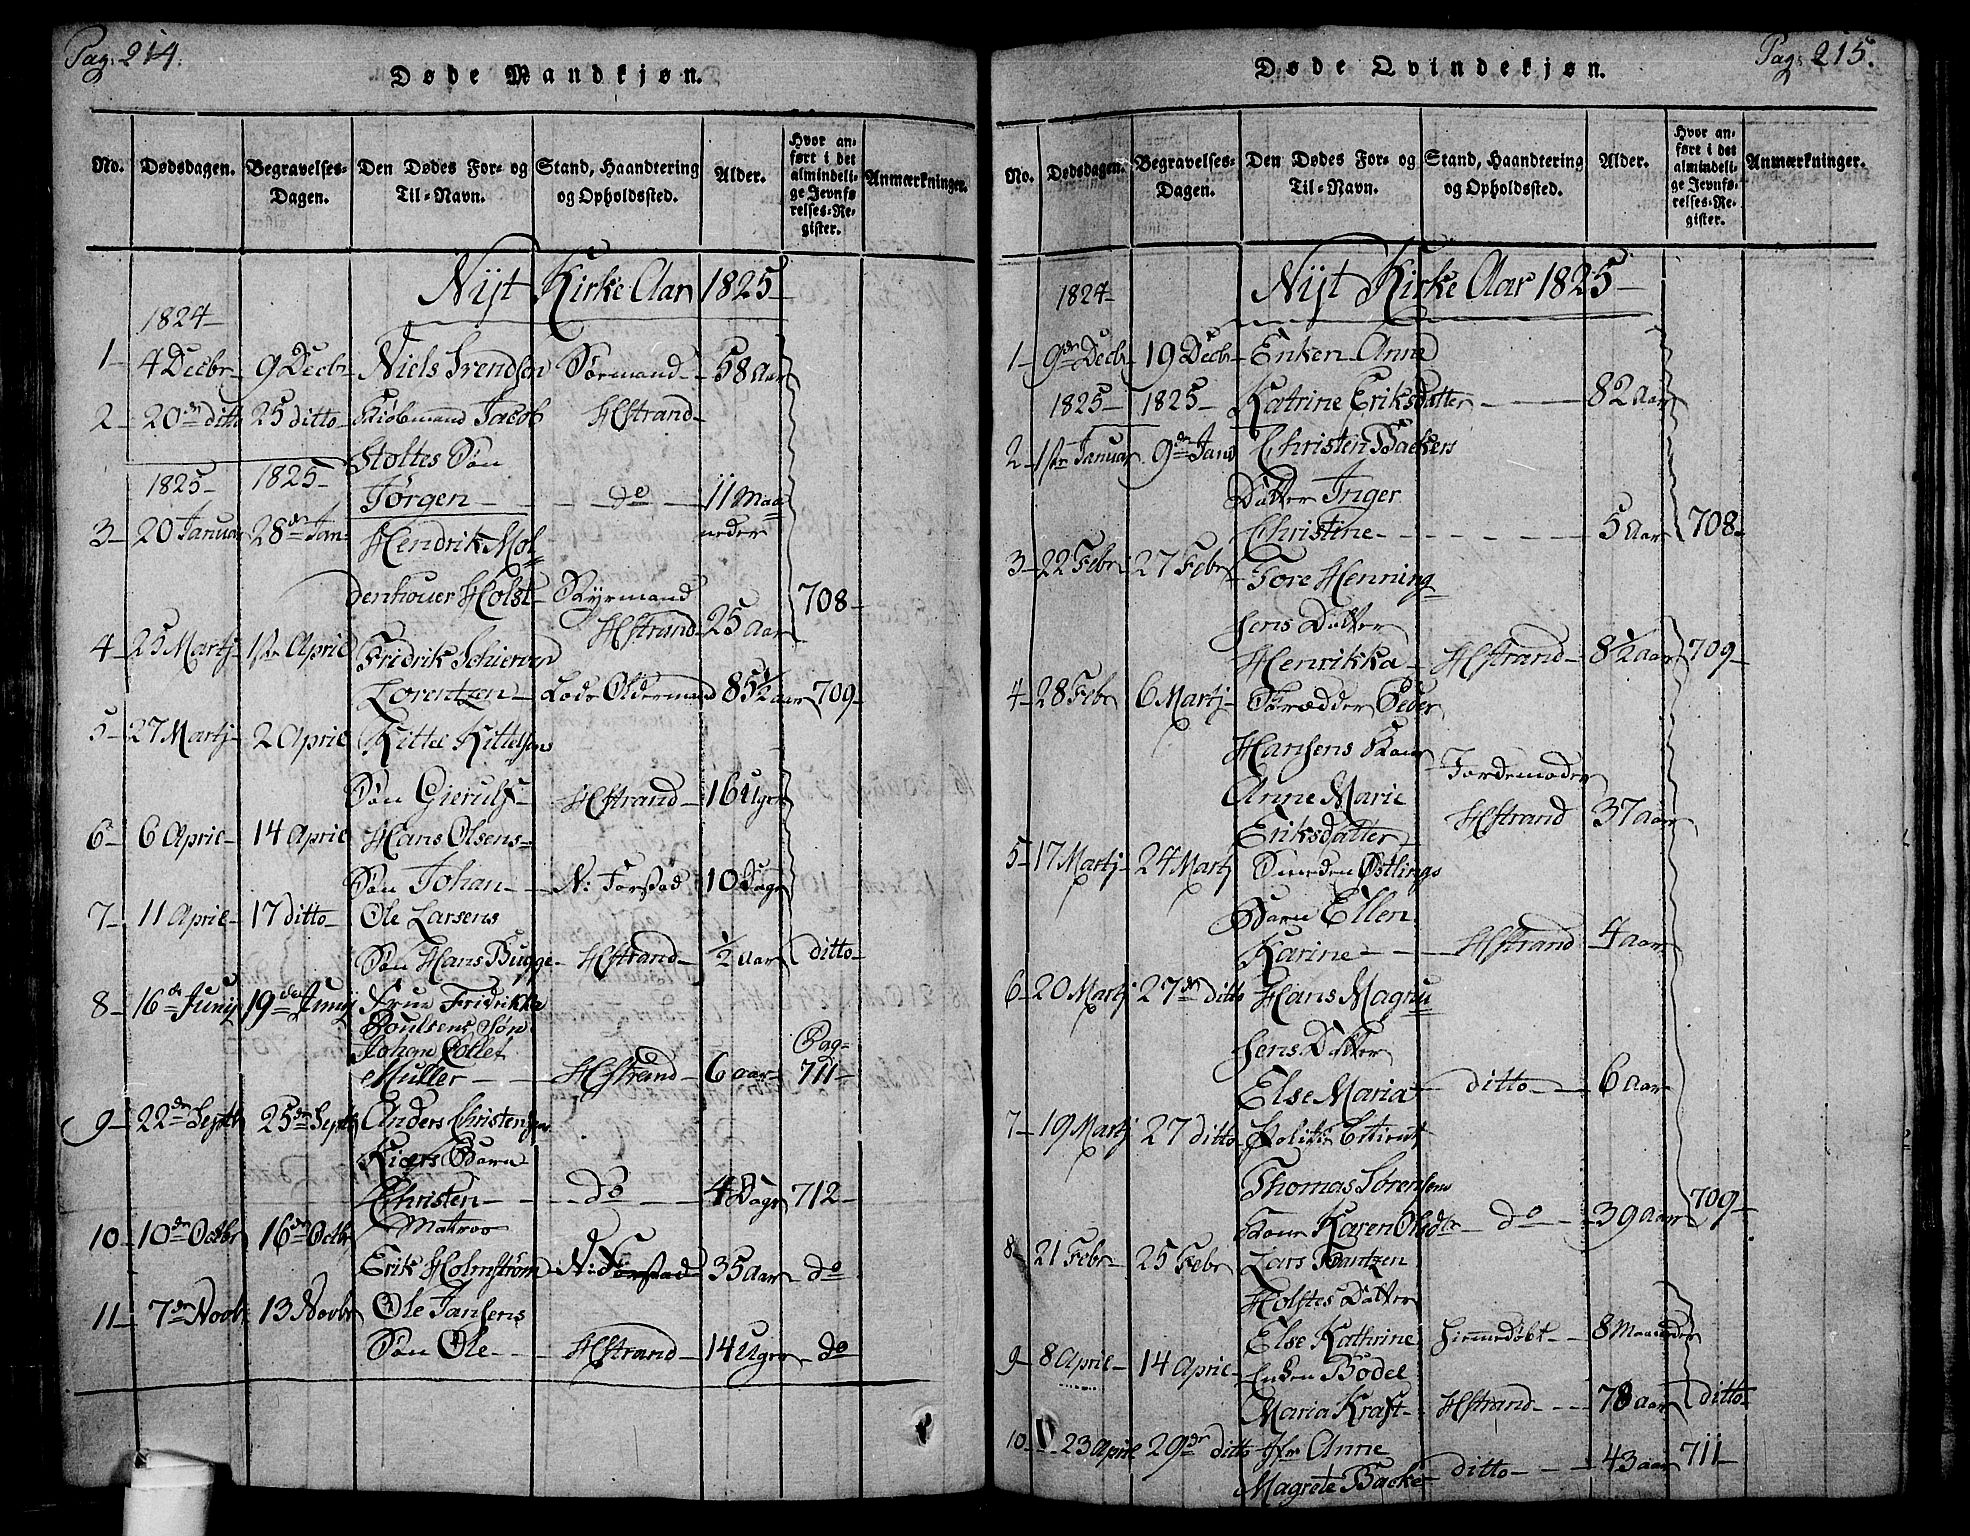 Pag. 214.
Døde Mandkjøn.
No. Dødsdagen. Begravelses-Dagen. Den Dødes For- og Til-Navn. Stand, Haandtering og Opholdssted. Alder. Hvor anført i det almindelige Jevnførelses-Register. Anmærkninger.
Nÿt Kirke Aar 1825
1824
1 4 Decbr 9 Decbr Niels Svendsen 58 Aar
2 20de ditto 25 ditto Kiøbmand Jacob HStrand
Stoltes Søn
1825 1825
Jørgen do 11 Maaneder
3 20 Januar 28de Jan: Hendrik Mol=
denhouer Holst Styrmand 708
HStrand 25 Aar
4 25 Martj 1ste April Fridrik
Lorentzen Lods Oldermand 85½ aar 709
5 27 Martj 2 April Kittel Kittelsen
Søn HStrand 16 Uger
6 6 April 14 April Hans Olsens
Søn Johan N: Torstad 10 Dage
7 11 April 17 ditto Ole Larsens
Søn Hans Bugge HStrand ½ Aar ditto
8 16de Junij 19de Junij Frue Fridrikke
Poulsens Søn
Johan Collet Pag
Muller HStrand 6 aar 711
9 22de Septb 25de Septb Anders Christensen
Kiærs Barn
Christen do 4 Dage 712
10 10de Octbr 16de Octbr Matros
Erik Holmstrøm N: Torstad 35 Aar do
11 7de Novb 13 Novbr Ole Jansens
Søn Ole HStrand 14 Uger do
Pag. 215.
Døde Qvindekjøn.
No. Dødsdagen. Begravelses-Dagen. Den Dødes For- og Til-Navn. Stand, Haandtering og Opholdssted. Alder. Hvor anført i det almindelige Jevnførelses-Register. Anmærkninger.
Nÿt Kirke Aar 1825
1824
1 9de Decbr 19 Decbr Enken Anne
1825 1825 Katrine Eriksdatter 82 Aar
2 1ste Januar 9de Jan Christen Backers
Datter Inger
Christine 5 Aar 708
3 22 Febr 27 Febr Tore Henning=
sens Datter
Henrikka HStrand 8½ aar 709
4 28 Febr 6 Martj Skrædder Peder
Hansens Kone Jordemoder
Anne Marie
Eriksdatter HStrand 37 Aar
5 17 Martj 24 Martj Smeden Østlings
Barn Ellen
Karine HStrand 4 aar
6 20 Martj 27de ditto Hans Magnu
sens Datter
Else Maria ditto 6 Aar
7 19 Martj 27 ditto
Thomas Sørensens
Kone Karen Olsdtr do 39 Aar 709
8 21 Febr 25 Febr Lars Bantzen
Holstes Datter
Else Kathrine hiemedøbt 8 Maaneder
9 8 April 14 April Enken Bodel
Maria Kraft HStrand 78 Aar ditto
10 23 April 29de ditto Jfr Anne
Magrete Backe ditto 43 aar 711